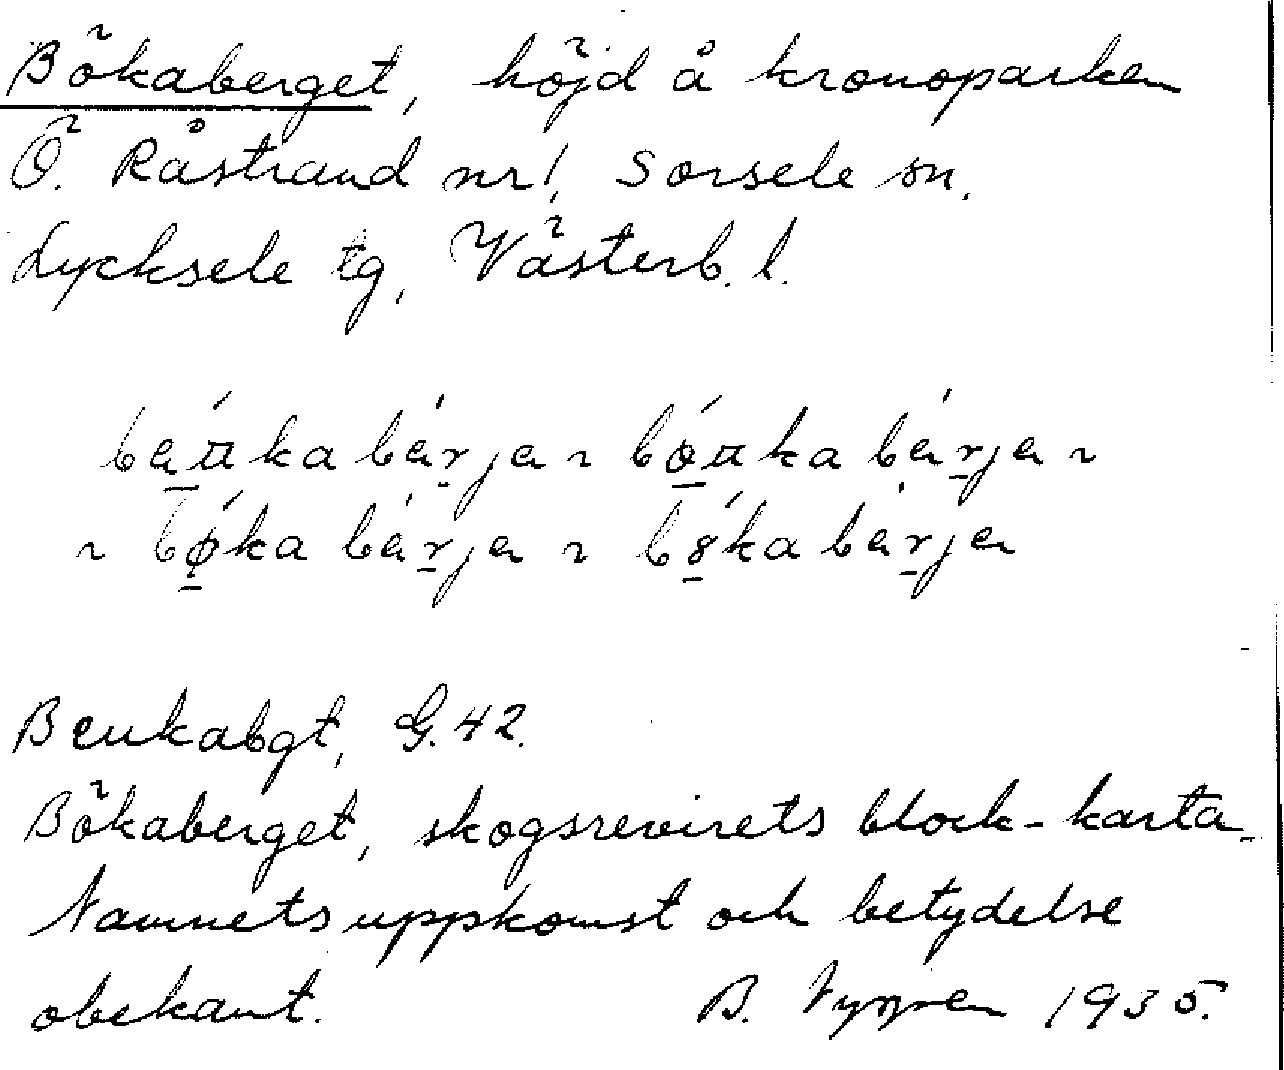 Bökaberget, höjd å kronoparken
Ö. Råstrand nr 1, Sorsele sn.
Lycksele tg, Västerb. l.
Beukabgt, G. 42.
Bökaberget, skogsrevirets block-karta.
Namnets uppkomst och betydelse
obekant. B. 1935.